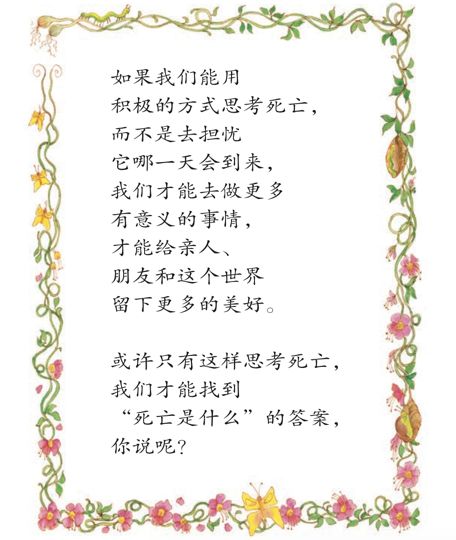 如果我们能用
积极的方式思考死亡，
而不是去担忧
它哪一天会到来，
我们才能去做更多
有意义的事情，
才能给亲人、
朋友和这个世界
留下更多的美好。
或许只有这样思考死亡，
我们才能找到
“死亡是什么”的答案，
你说呢？